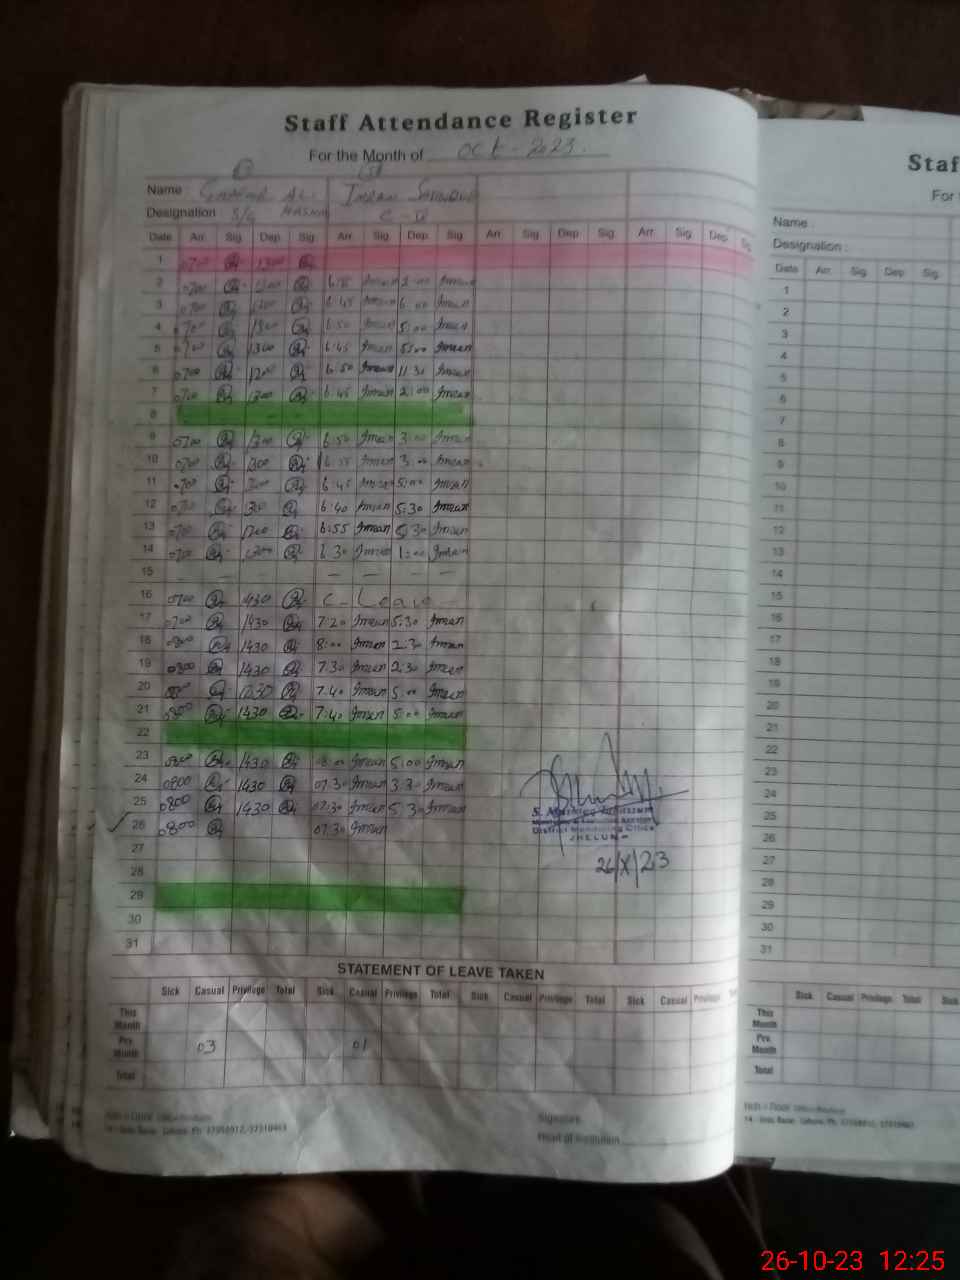 Staff Attendance Register
For the Month of Oct - 2023.
Name : Imran
Designation S/G C-IV
Date Arr. Sig. Dep. Sig. Arr. Sig. Dep. Sig. Arr. Sig. Dep. Sig. Arr. Sig. Dep. Sig.
1 0700 1300
2 0700 1300 Imran 2:00 Imran
3 0700 1300 6:45 Imran 6:00 Imran
4 0700 1300 6:50 Imran 5:00 Imran
5 0700 1300 6:45 Imran 5:00 Imran
6 0700 1200 6:50 Imran 11:30 Imran
7 0700 1300 6:45 Imran 2:00 Imran
8
9 0700 1300 6:50 Imran 3:00 Imran
10 0700 1300 6:55 Imran 3:00 Imran
11 0700 1300 6:45 Imran 5:00 Imran
12 0700 1300 6:40 Imran 5:30 Imran
13 0700 1200 6:55 Imran 5:30 Imran
14 0700 1300 6:30 Imran 1:00 Imran
15 — — — — — —
16 0700 1430 C - Leave -
17 0700 1430 7:20 Imran 5:30 Imran
18 0800 1430 8:00 Imran 2:30 Imran
19 0800 1430 7:30 Imran 2:30 Imran
20 0800 1230 7:40 Imran 5:00 Imran
21 0800 1430 7:40 Imran 5:00 Imran
22
23 0800 1430 08:00 Imran 5:00 Imran
24 0800 1430 07:30 Imran 3:30 Imran
25 0800 1430 07:30 Imran 5:30 Imran
26 0800 07:30 Imran
27
28
29
30
31
District Monitoring Office
JHELUM
26/X/23
STATEMENT OF LEAVE TAKEN
Sick Casual Privilege Total Sick Casual Privilege Total Sick Casual Privilege Total Sick Casual Privilege
This Month
Prv. Month 03 01
Total
14 - Urdu Bazar, Lahore. Ph:
Signature
Head of Institution
Staf
For
Name :
Designation :
Date Arr. Sig. Dep. Sig.
1
2
3
4
5
6
7
8
9
10
11
12
13
14
15
16
17
18
19
20
21
22
23
24
25
26
27
28
29
30
31
Sick Casual Privilege Total Sick
This Month
Prv. Month
Total
14 - Urdu Bazar, Lahore. Ph:
26-10-23 12:25